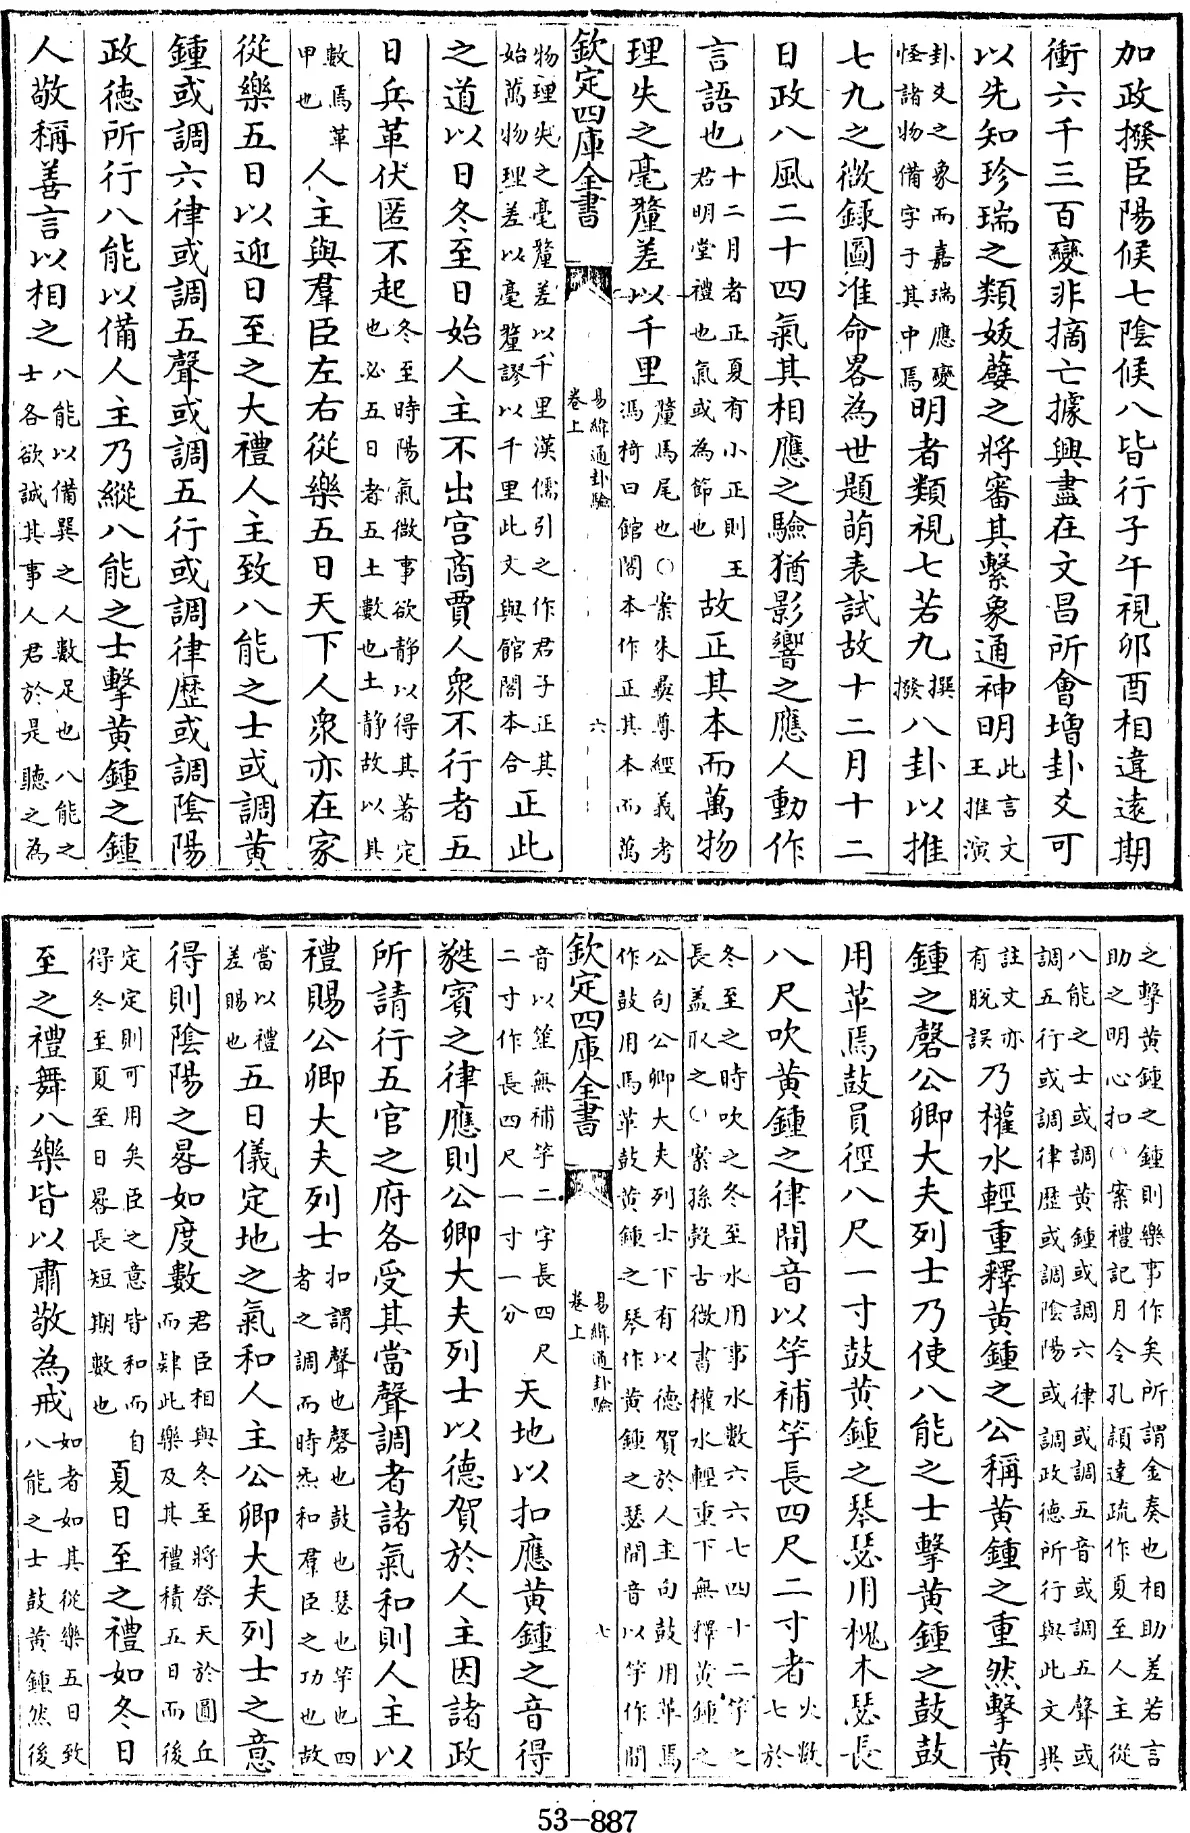 加政撥臣陽候七陰候八皆行子午視卯酉相違遠期
衝六千三百變非摘亡據興盡在文昌所會增卦爻可
以先知珍瑞之類妭孽之將審其繫象通神明此言文王推演
卦爻之象而嘉瑞應變怪諸物備字于其中焉明者類視七若九撰撥八卦以推
七九之徵錄圖准命畧為世題萌表試故十二月十二
日政八風二十四氣其相應之驗猶影響之應人動作
言語也十二月者正夏有小正則王君明堂禮也氣或為節也故正其本而萬物
理失之毫釐差以千里釐馬尾也○案朱彛尊經義考馮椅曰館閣本作正其本而萬
欽定四庫全書 易緯通卦驗 卷上 六
物理失之毫釐差以千里漢儒引之作君子正其始萬物理差以毫釐謬以千里此文與館閣本合正此
之道以日冬至日始人主不出宫商賈人衆不行者五
日兵革伏匿不起冬至時陽氣微事欲静以得其著定也必五日者五土數也土静故以其
數焉革甲也人主與羣臣左右從樂五日天下人衆亦在家
從樂五日以迎日至之大禮人主致八能之士或調黄
鍾或調六律或調五聲或調五行或調律歴或調陰陽
政德所行八能以備人主乃縱八能之士擊黄鍾之鍾
人敬稱善言以相之八能以備㢲之人數足也八能之士各欲誠其事人君於是聽之為
之擊黄鍾之鍾則樂事作矣所謂金奏也相助差若言助之明心扣○案禮記月令孔頴達疏作夏至人主從
八能之士或調黄鍾或調六律或調五音或調五聲或調五行或調律歴或調陰陽或調政德所行與此文異
註文亦有脱誤乃權水輕重釋黄鍾之公稱黄鍾之重然擊黄
鍾之磬公卿大夫列士乃使八能之士擊黄鍾之鼓鼓
用革焉鼓員徑八尺一寸鼓黄鍾之琴瑟用槐木瑟長
八尺吹黄鍾之律間音以竽補竽長四尺二寸者火數七於
冬至之時吹之冬至水用事水數六六七四十二竽之長盖取之○案孫瑴古微書權水輕重下無釋黄鍾之
公句公卿大夫列士下有以德賀於人主句鼓用革焉作鼓用馬革鼓黄鍾之琴作黄鍾之瑟間音以竽作間
欽定四庫全書 易緯通卦驗 卷上 七
音以簅無補竽二字長四尺二寸作長四尺一寸一分天地以扣應黄鍾之音得
蕤賓之律應則公卿大夫列士以德賀於人主因諸政
所請行五官之府各受其當聲調者諸氣和則人主以
禮賜公卿大夫列士扣謂聲也磬也鼓也瑟也竽也四者之調而時炁和羣臣之功也故
當以禮差賜也五日儀定地之氣和人主公卿大夫列士之意
得則陰陽之晷如度數君臣相與冬至將祭天於圓丘而肄此樂及其禮積五日而後
定定則可用矣臣之意皆和而自得冬至夏至日晷長短期數也夏日至之禮如冬日
至之禮舞八樂皆以肅敬為戒如者如其從樂五日致八能之士鼓黄鍾然後
53-887